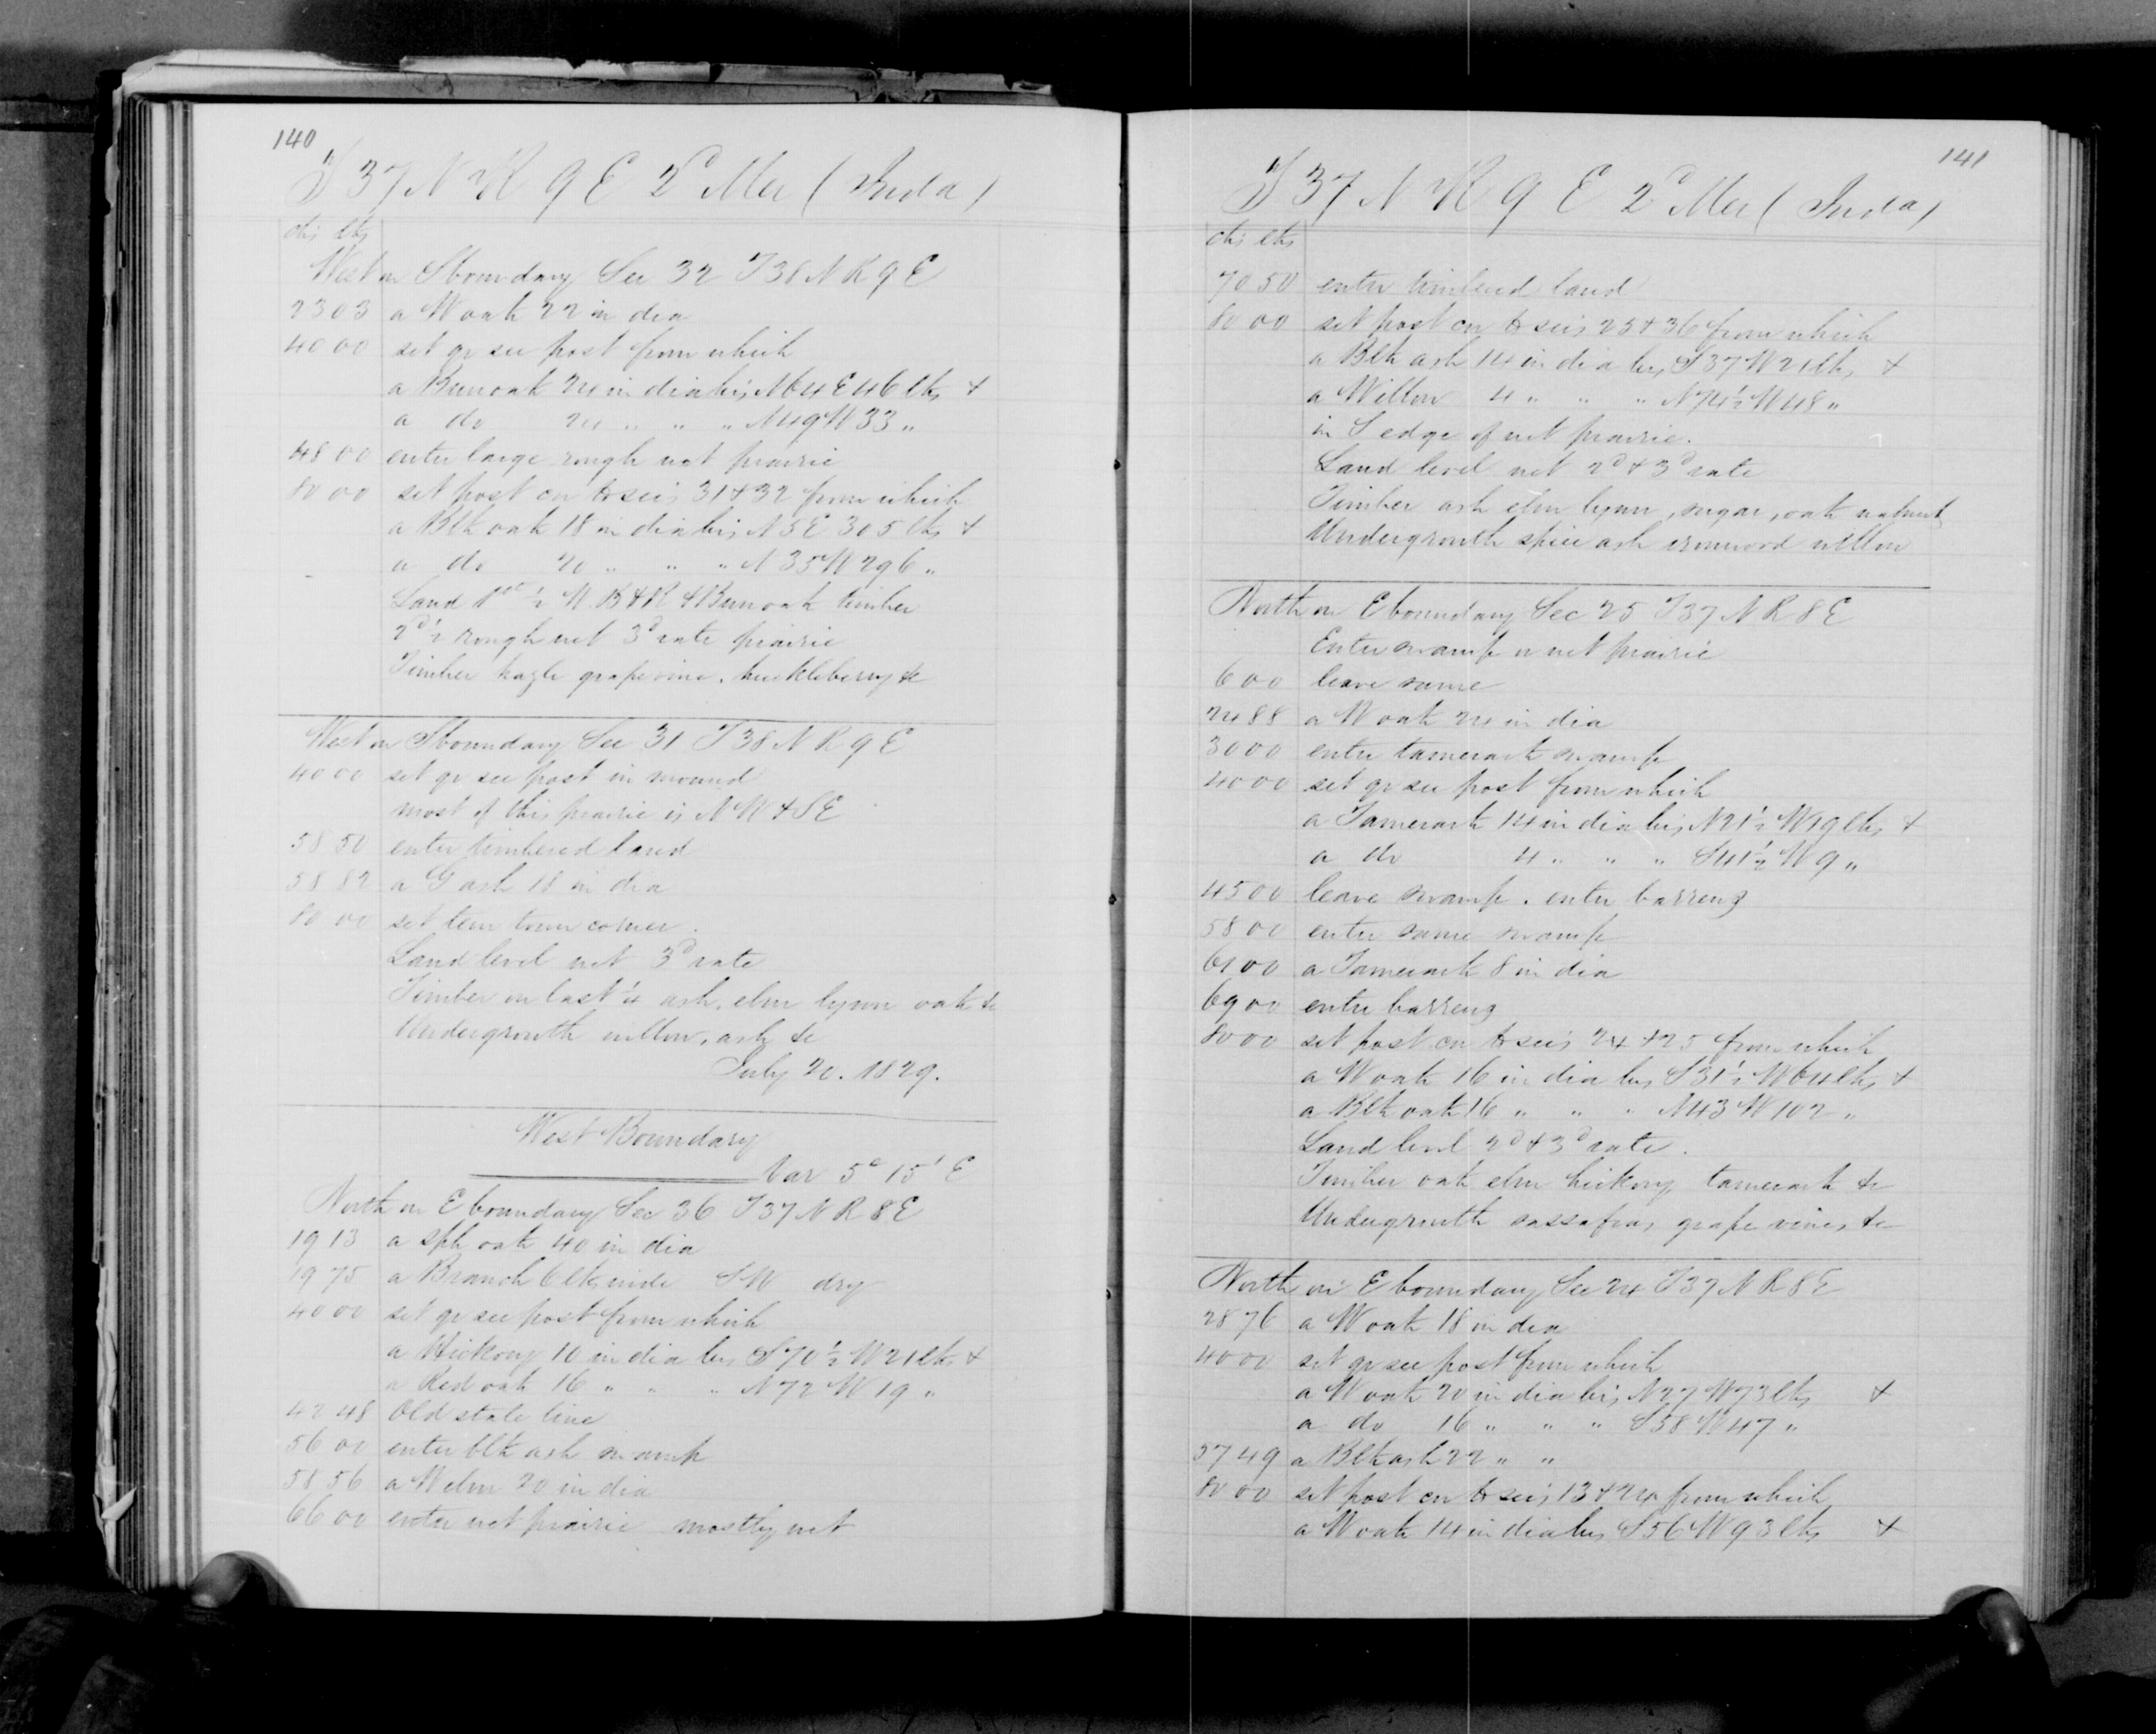 140
T 37 N R 9 E 2d Mer (Inda)
chs lks
West on S boundary Sec 32 T 38 N R 9 E
23 03 a W oak 22 in dia
40 00 set qr sec post from which
a Burr oak 24 in dia brs N 64 E 46 lks &
a do 24 " " " N 49 W 33 "
48 00 enter large rough wet prairie
80 00 set post cor to secs 31 & 32 from which
a Blk oak 18 in dia brs N 5 E 305 lks &
a do 20 " " " N 35 W 296 "
Land 1st ½ W. B & R & Burr oak timber
2d ½ rough wet 3d rate prairie
Timber hazle grapevine, huckleberry &c
West on S boundary Sec 31 T 38 N R 9 E
40 00 set qr sec post in mound
most of this prairie is N W & S E
58 50 enter timbered land
58 82 a G ash 18 in dia
80 00 set tem town corner.
Land level wet 3d rate
Timber on last ¼ ash, elm lynn oak &c
Undergrowth willow, ash &c
July 20. 1829.
West Boundary
Var 5° 15' E
North on E boundary Sec 36 T 37 N R 8 E
19 13 a sph oak 40 in dia
19 75 a Branch 6 lks wide SW dry
40 00 set qr sec post from which
a Hickory 10 in dia brs S 70½ W 21 lks &
a Red oak 16 " " " N 72 W 19 "
42 48 Old state line
56 00 enter blk ash swamp
58 56 a W elm 20 in dia
66 00 enter wet prairie mostly wet
141
T 37 N R 9 E 2d Mer (Inda)
chs lks
70 50 enter timbered land
80 00 set post cor to secs 25 & 36 from which
a Blk ash 14 in dia brs S 37 W 21 lks &
a Willow 4 " " " N 74½ W 48 "
in S edge of wet prairie.
Land level wet 2d & 3d rate
Timber ash elm lynn, sugar, oak walnut
Undergrowth spice ash ironwood willow
North on E boundary Sec 25 T 37 N R 8 E
Enter swamp or wet prairie
6 00 leave same
24 88 a W oak 24 in dia
30 00 enter tamerack swamp
40 00 set qr sec post from which
a Tamerack 14 in dia brs N 21½ W 19 lks &
a do 4 " " " S 41½ W 9 "
45 00 leave swamp. enter barrens
58 00 enter same swamp
61 00 a Tamerack 8 in dia
69 00 enter barrens
80 00 set post cor to secs 24 & 25 from which
a W oak 16 in dia brs S 31½ W 64 lks &
a Blk oak 16 " " " N 43 W 102 "
Land level 2d & 3d rate.
Timber oak elm hickory tamerack &c
Undergrowth sassafras grape vines &c
North on E boundary Sec 24 T 37 N R 8 E
28 76 a W oak 18 in dia
40 00 set qr sec post from which
a W oak 20 in dia brs N 27 W 73 lks &
a do 16 " " " S 58 W 47 "
57 49 a Blk ash 22 " "
80 00 set post cor to secs 13 & 24 from which
a W oak 14 in dia brs S 56 W 93 lks &